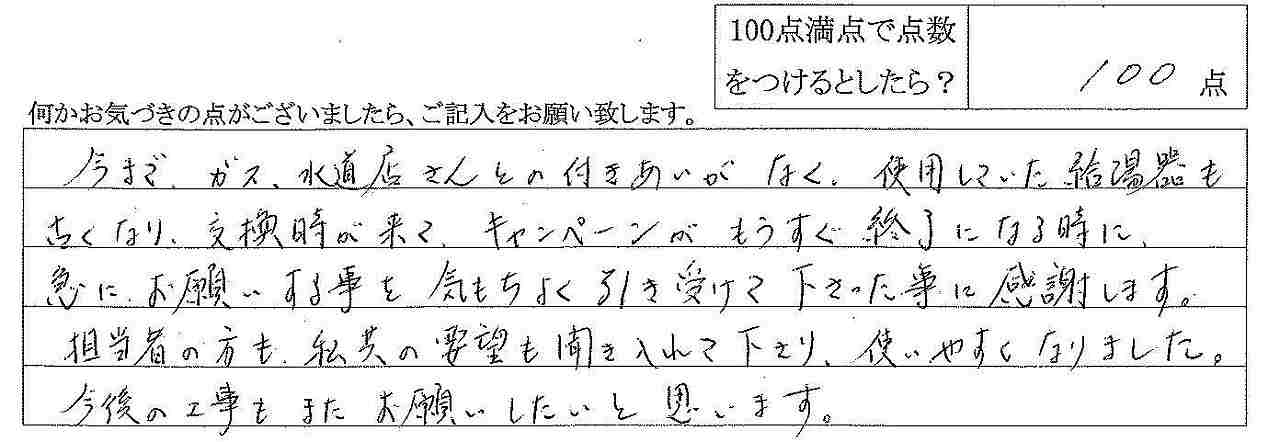 100点満点で点数
をつけるとしたら？
100 点
何かお気づきの点がございましたら、ご記入をお願い致します。
今まで、ガス、水道店さんとの付きあいがなく、使用していた給湯器も
古くなり、交換時が来て、キャンペーンがもうすぐ終了になる時に、
急にお願いする事を気もちよく引き受けて下さった事に感謝します。
担当者の方も、私共の要望も聞き入れて下さり、使いやすくなりました。
今後の工事もまたお願いしたいと思います。